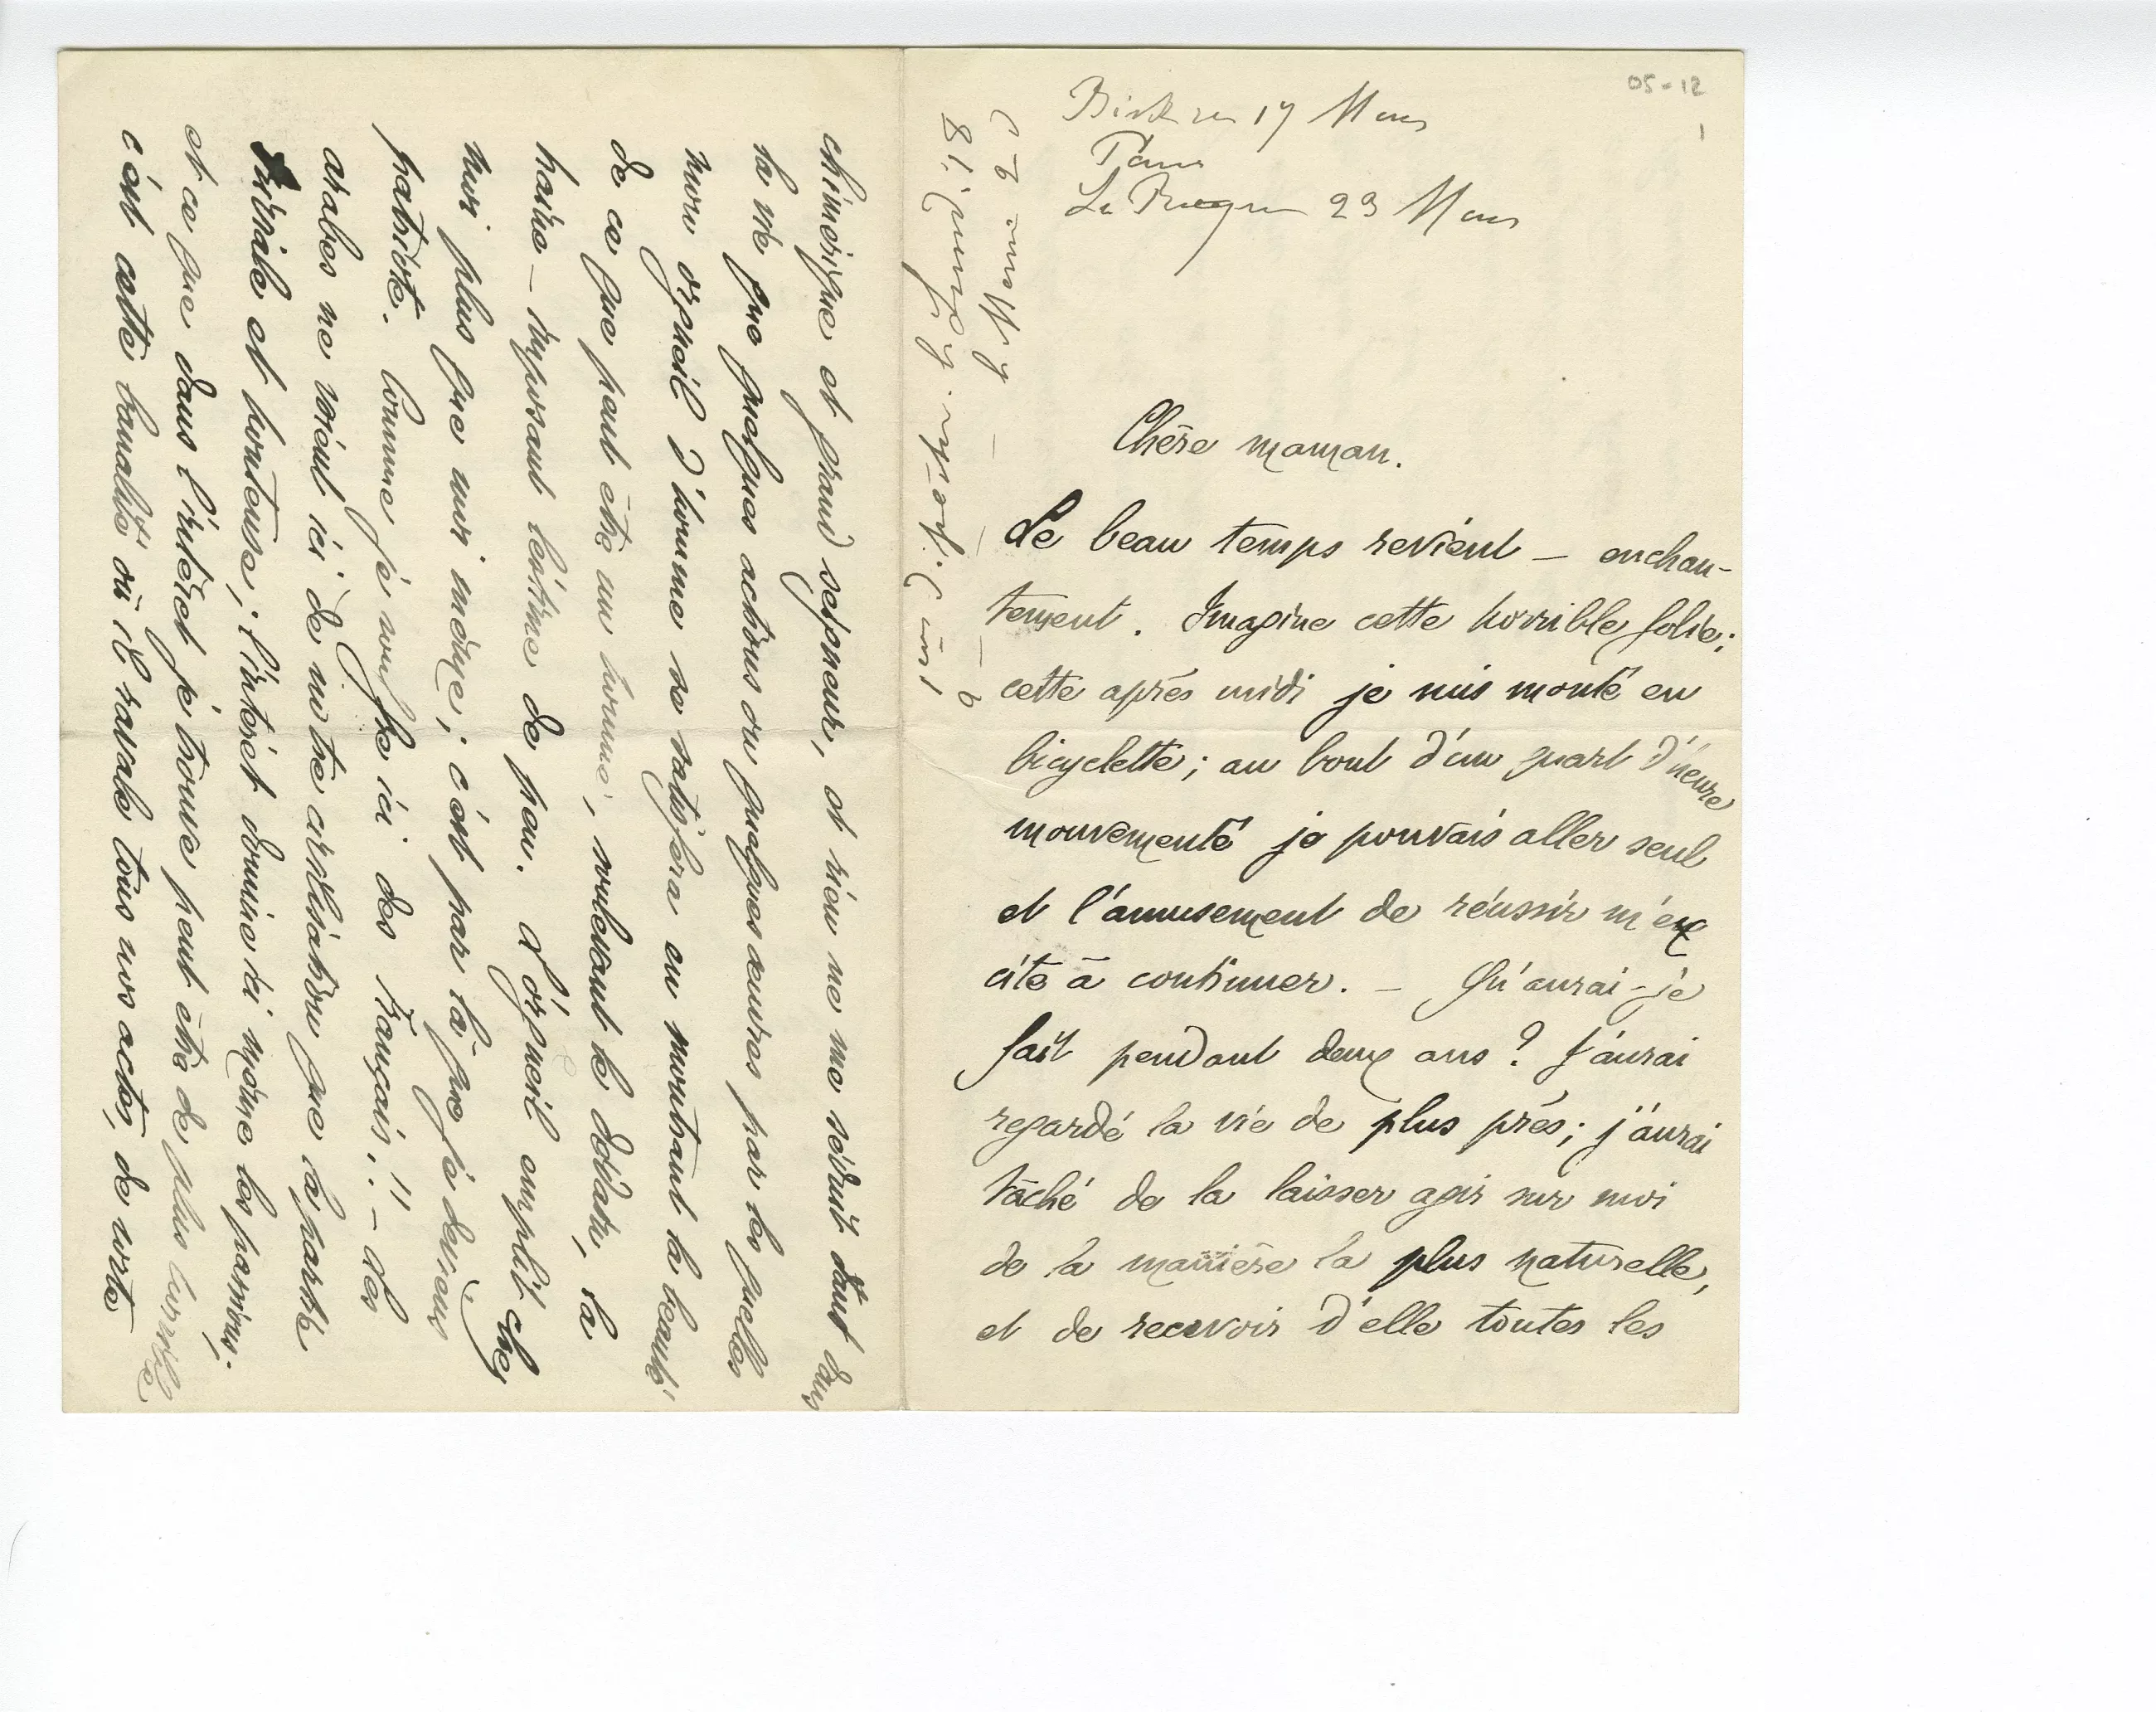 05-12
1
Biskra 17 Mars
Paris
La Roque 23 Mars
Chère maman.
Le beau temps revient – enchan-
tement. Imagine cette horrible folie;
cette après midi je suis monté en
bicyclette; au bout d'un quart d'heure
mouvementé je pouvais aller seul
et l'amusement de réussir m'ex
cite à continuer. – Qu'aurai-je
fait pendant deux ans? J'aurai
regardé la vie de plus près; j'aurai
tâché de la laisser agir sur moi
de la manière la plus naturelle,
et de recevoir d'elle toutes les
chimérique et grand seigneur, et rien ne me séduit tant dans
la vie que quelques actions ou quelques œuvres par les quelles
mon orgueil d'homme se satisfera en montrant la beauté
de ce que peut être un homme, soulevant le dédain, la
haine – imposant l'estime de peu. L'orgueil emplit chez
moi plus que moi même; c'est par là que je deviens
patriote. Comme je souffre ici des Français!! – des
arabes ne vient ici de notre civilisation que la partie
triviale et honteuse; l'intérêt domine ici même les passions.
et ce que dans l'intérêt je trouve peut être de plus terrible
c'est cette banalité où il ravale tous nos actes, de sorte